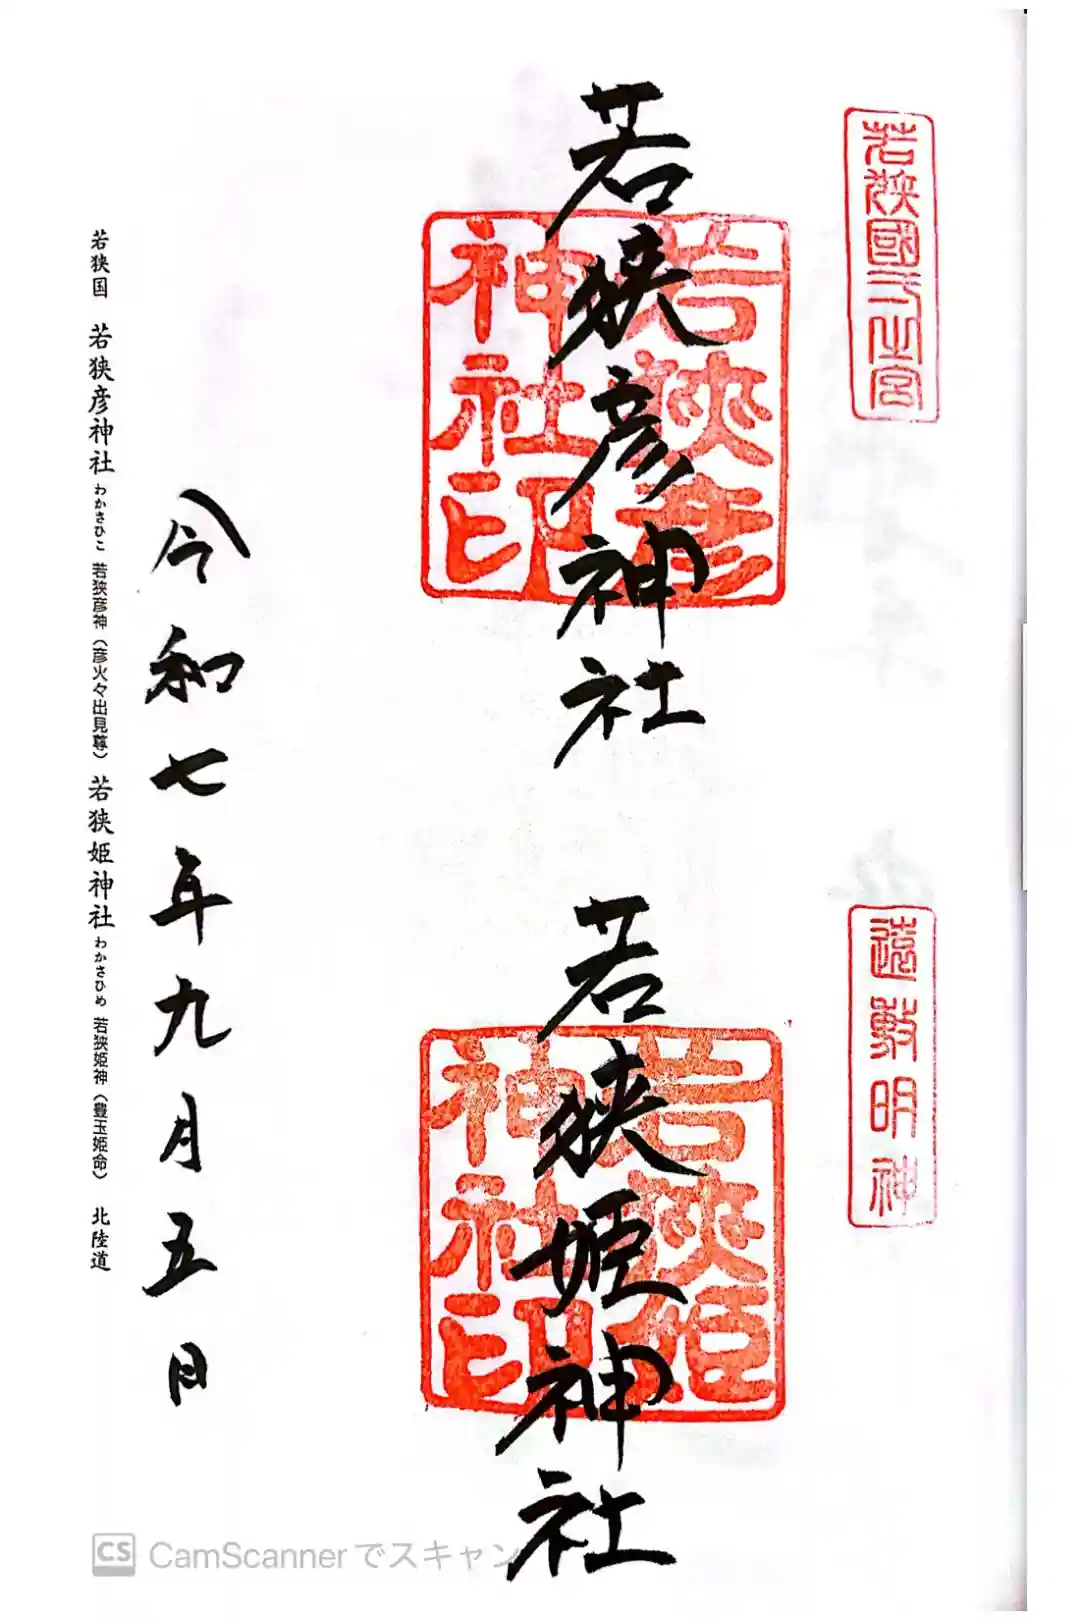 若狭國一之宮
若狭彦神社
若狭彦
神社印
遠敷明神
若狭姫神社
若狭姫
神社印
令和七年九月五日
若狭国 若狭彦神社 わかさひこ 若狭彦神（彦火々出見尊） 若狭姫神社 わかさひめ 若狭姫神（豊玉姫命） 北陸道
CS CamScannerでスキャン